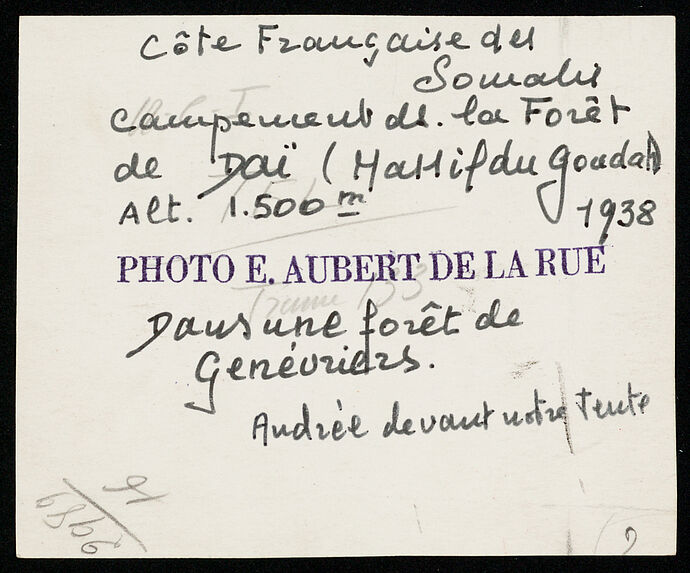 Côte Française des
Somalis
Campement de la Forêt
de Daï (Massif du Goudah)
Alt. 1.500 m 1938
PHOTO E. AUBERT DE LA RUE
Trame 133
Dans une forêt de
Genévriers.
Andrée devant notre tente